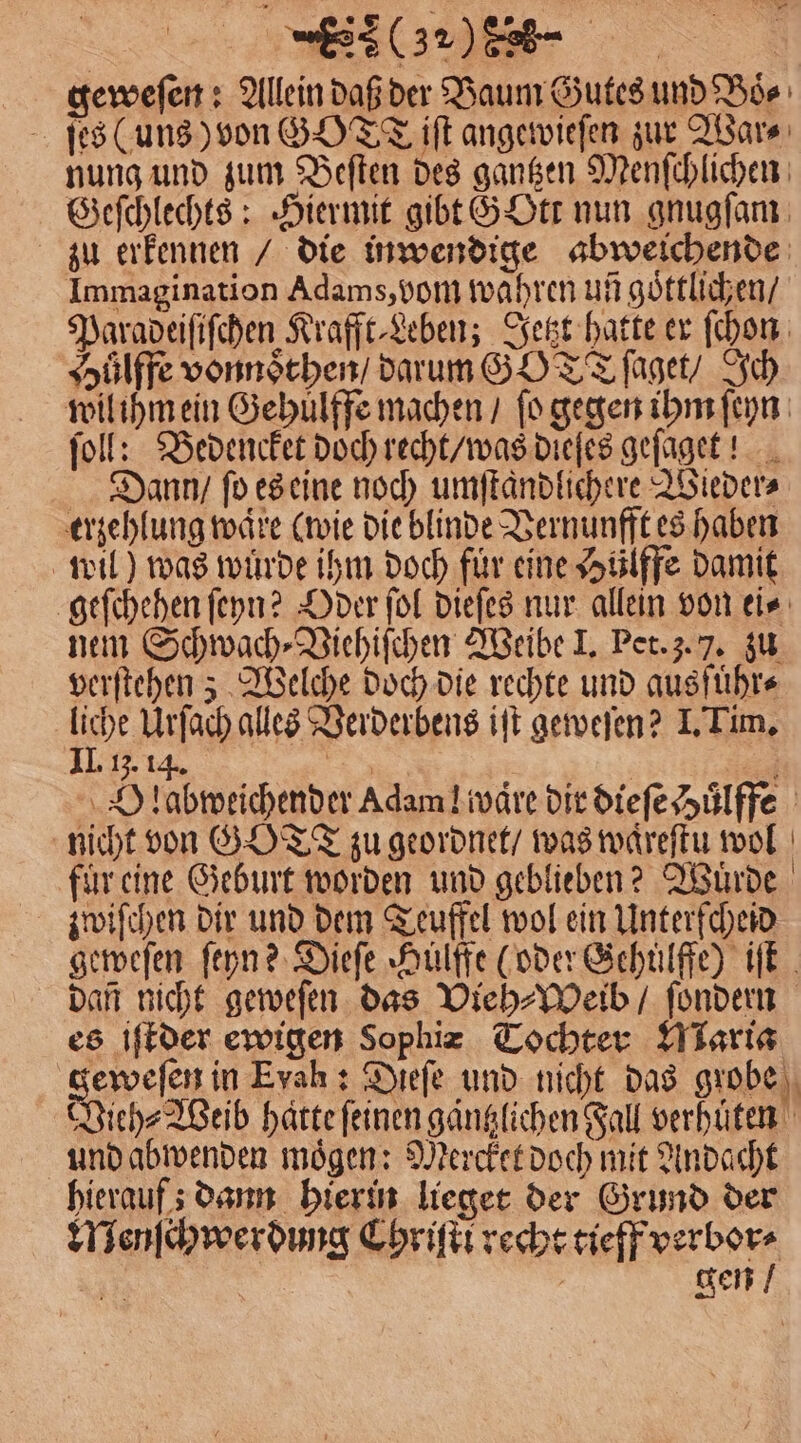 (32)
geweſen: Allein daß der Baum Gutes und Boͤ⸗
ſes (uns) von GOTT iſt angewieſen zur War⸗
nung und zum Beſten des gantzen Menſchlichen
Geſchlechts: Hiermit gibt GOtt nun gnugſam
zu erkennen / die inwendige abweichende
Immagination Adams, vom wahren uñ goͤttlichen /
Paradeiſiſchen Krafft⸗Leben; Jetzt hatte er ſchon
Huͤlffe vonnoͤthen / darum GOTT ſaget / Ich
wil ihm ein Gehuͤlffe machen / ſo gegen ihm ſeyn
ſoll: Bedencket doch recht / was dieſes geſaget!
Dann / ſo es eine noch umſtaͤndlichere Wieder⸗
erzehlung waͤre (wie die blinde Vernunfft es haben
wil) was wuͤrde ihm doch fuͤr eine Huͤlffe damit
geſchehen ſeyn? Oder ſol dieſes nur allein von ei⸗
nem Schwach⸗Viehiſchen Weibe I. Pet. 3. 7. zu
verſtehen; Welche doch die rechte und ausfuͤhr⸗
liche Urſach alles Verderbens iſt geweſen? I. Tim.
II. 13. 14.
O! abweichender Adam! waͤre dir dieſe Huͤlffe
nicht von GOTT zu geordnet / was waͤreſtu wol
fuͤr eine Geburt worden und geblieben? Wuͤrde
zwiſchen dir und dem Teuffel wol ein Unterſcheid
geweſen ſeyn? Dieſe Huͤlffe (oder Gehuͤlffe) iſt
dañ nicht geweſen das Vieh⸗Weib / ſondern
es iſt der ewigen Sophiæ Tochter Maria
geweſen in Evah: Dieſe und nicht das grobe
Vieh⸗Weib haͤtte ſeinen gaͤntzlichen Fall verhuͤten
und abwenden moͤgen: Mercket doch mit Andacht
hierauf; dann hierin lieget der Grund der
Menſchwerdung Chriſti recht tieff verbor⸗
gen /